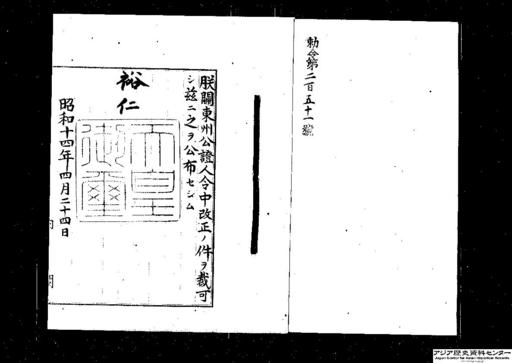 勅令第二百五十一號
朕關東州公證人令中改正ノ件ヲ裁可
シ茲ニ之ヲ公布セシム
裕仁
天皇御璽
昭和十四年四月二十四日
内閣
アジア歴史資料センター
Japan Center for Asian Historical Records